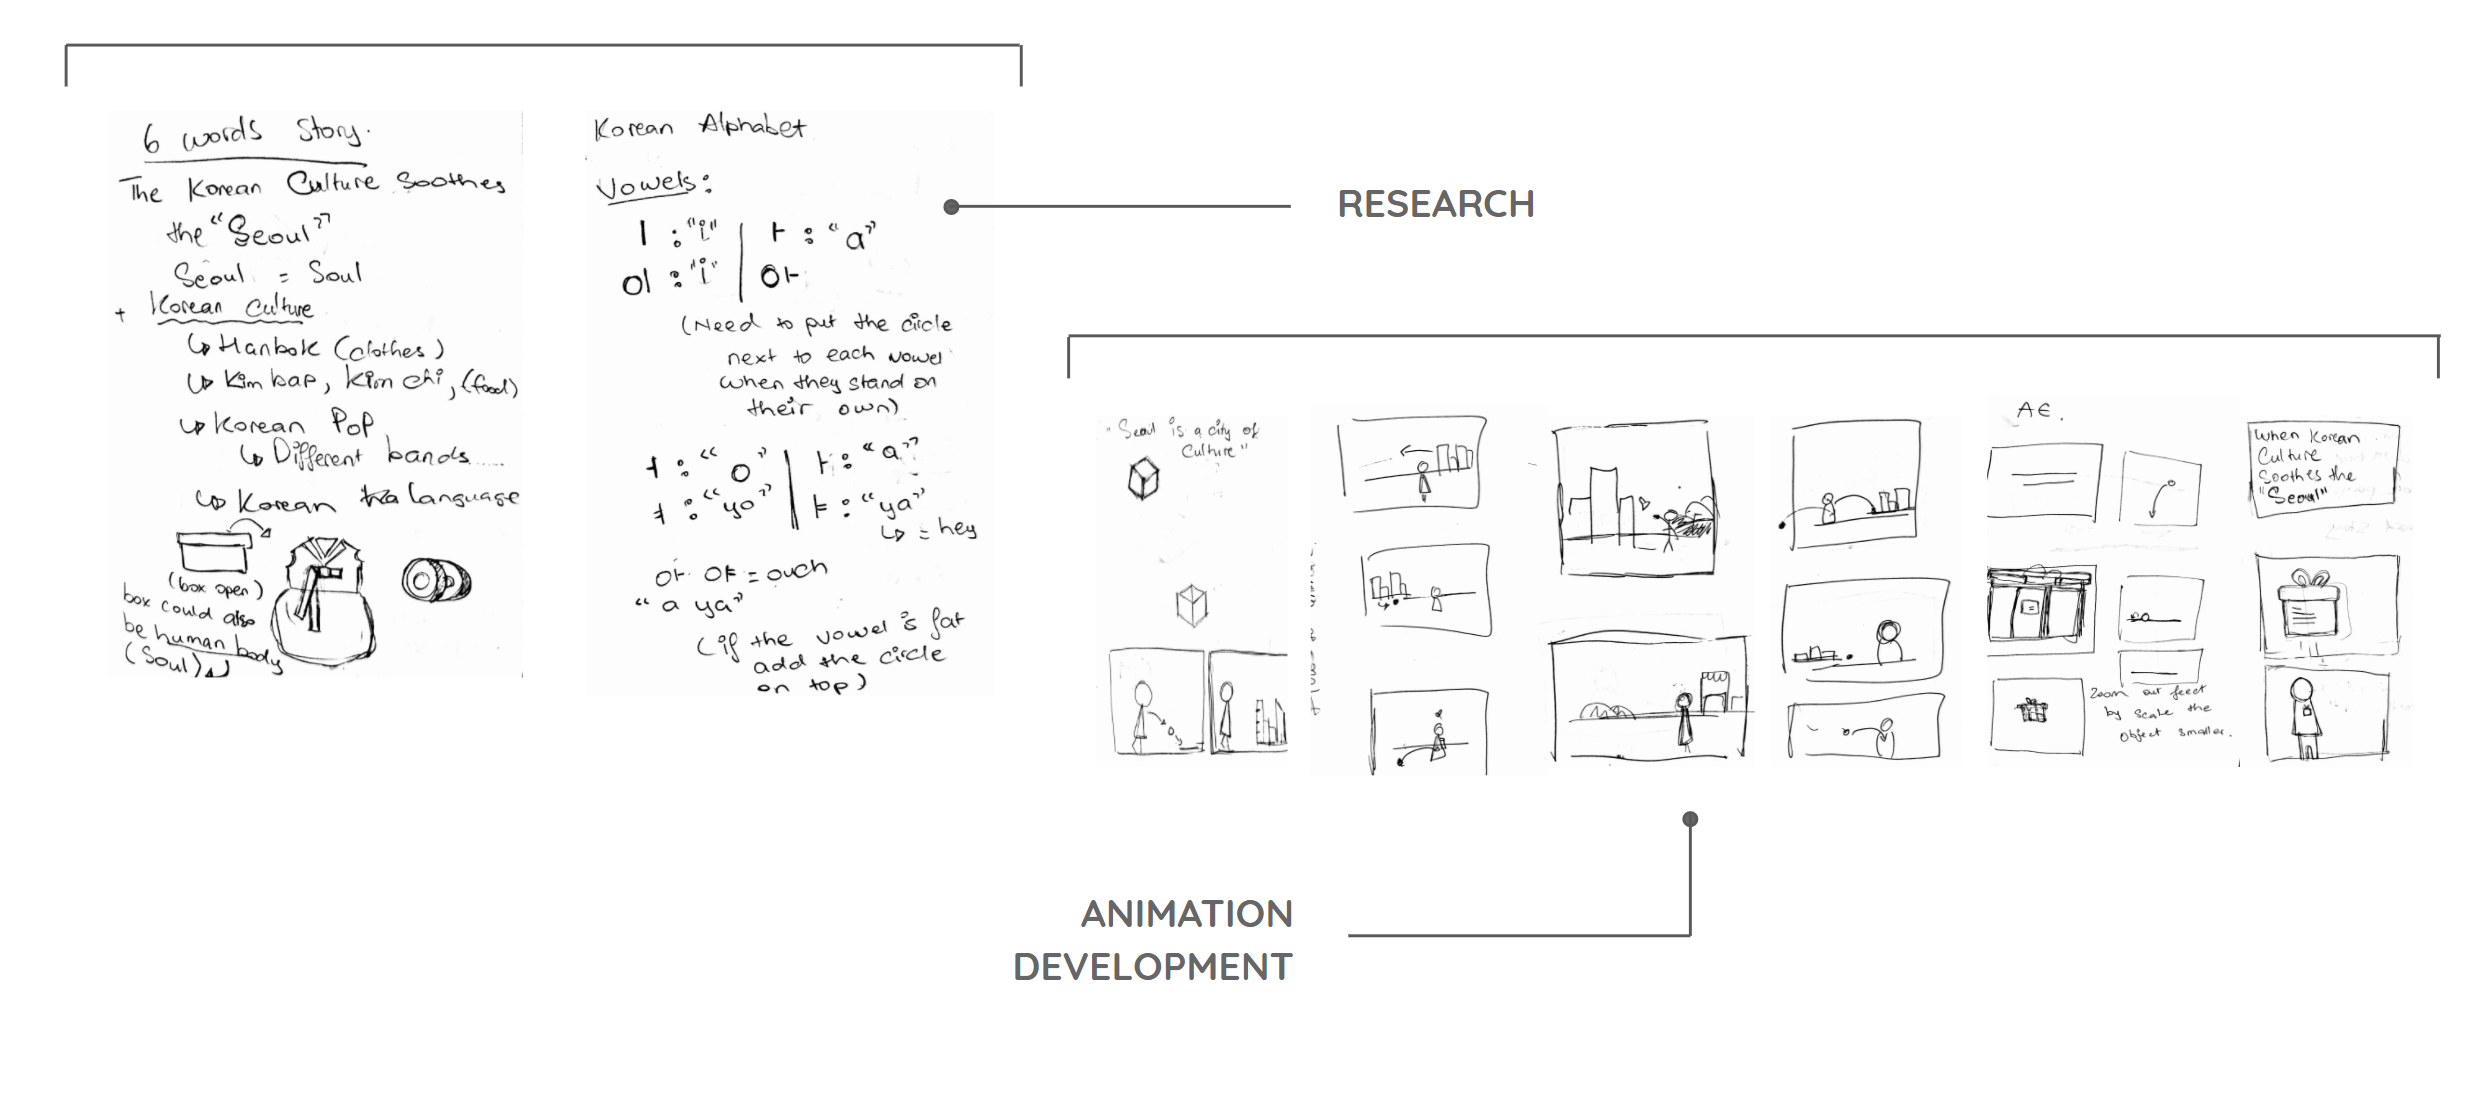 6 words story.
The Korean Culture Soothes
the "Seoul"
Seoul = Soul
+ Korean Culture
↳ Hanbok (clothes)
↳ Kimbap, Kimchi, (food)
↳ Korean Pop
↳ Different bands.....
↳ Korean language
(box open)
box could also
be human body
(Soul)
Korean Alphabet
Vowels:
ㅣ : "i" | ㅏ : "a"
이 : "i" | 아
(Need to put the circle
next to each vowel
when they stand on
their own)
ㅓ : "o" | ㅏ : "a"
ㅕ : "yo" | ㅑ : "ya"
↳ = hey
아 야 = ouch
"a ya"
(if the vowel is fat
add the circle
on top)
RESEARCH
"Seoul is a city of
Culture"
AE.
Zoom out
by scale the
object smaller.
When Korean
Culture
Soothes the
"Seoul"
ANIMATION
DEVELOPMENT